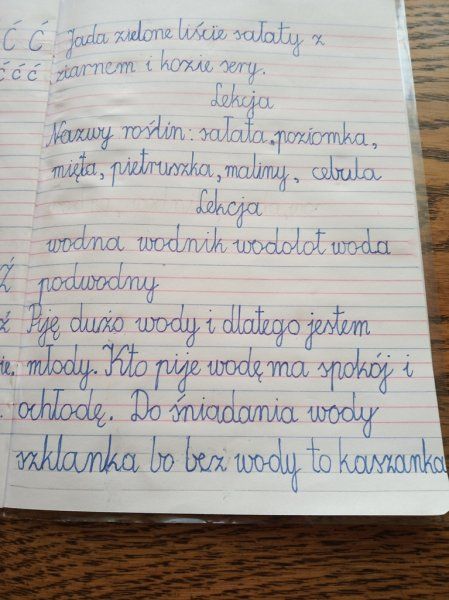 Ć Ć Jada zielone liście sałaty z
ć ć ć ziarnem i kozie sery.
Lekcja
Nazwy roślin: sałata, poziomka,
mięta, pietruszka, maliny, cebula
Lekcja
wodna wodnik wodolot woda
Ź podwodny
ź Piję dużo wody i dlatego jestem
ie. młody. Kto pije wodę ma spokój i
. ochłodę. Do śniadania wody
szklanka bo bez wody to kaszanka